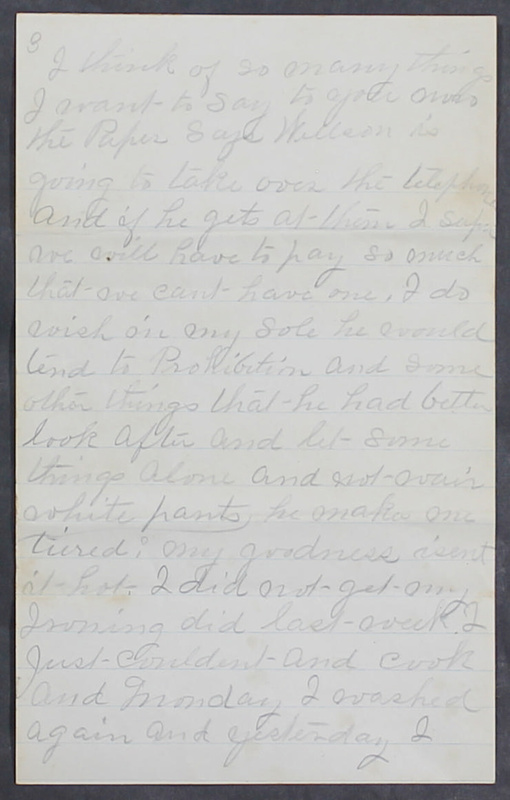 3
I think of so many things
I want to say to you now
the Paper Says Willson is
going to take over the telephone
and if he gets at them I sup
we will have to pay so much
that we cant have one. I do
wish on my Sole he would
tend to Prohibetion and some
other things that he had better
look after and let some
things alone and not wair
white pants, he makes me
tiered; my goodness isent
it hot. I did not get my
Ironing did last week. I
Just couldent and cook
and Monday I washed
again and yesterday I